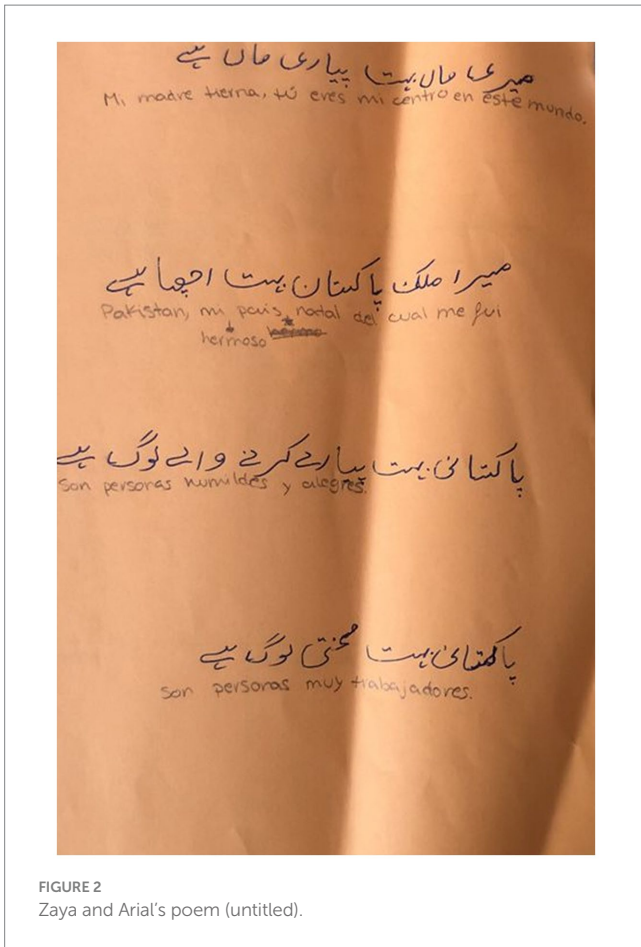 میری ماں بہت پیاری ماں ہے
Mi madre tierna, tú eres mi centro en este mundo.
میرا ملک پاکستان بہت اچھا ہے
Pakistan, mi país natal del cual me fui
hermoso
پاکستانی بہت پیارے کرنے والے لوگ ہے
Son personas humildes y alegres.
پاکستانی بہت محنتی لوگ ہے
Son personas muy trabajadores.
FIGURE 2
Zaya and Arial's poem (untitled).